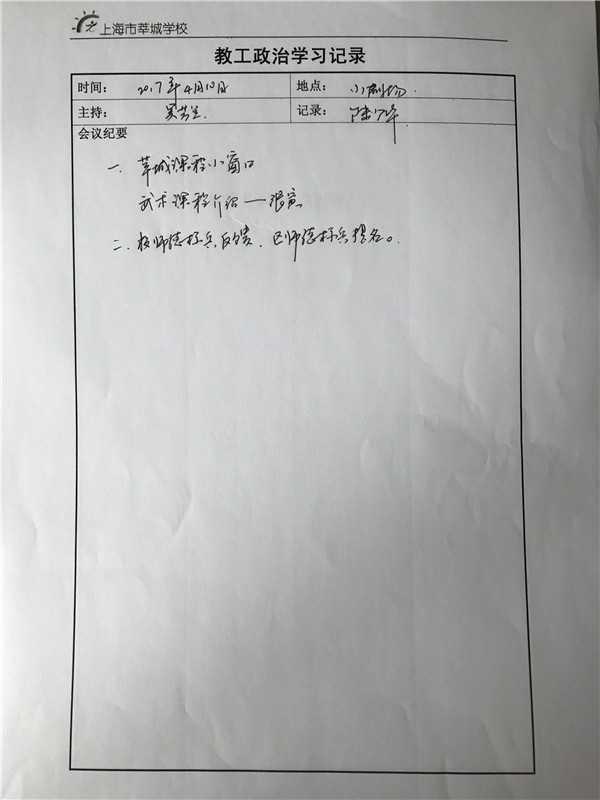 上海市莘城学校
教工政治学习记录
时间： 2017年4月10日 地点： 小剧场
主持： 吴芳芝 记录： 陆少华
会议纪要
一. 莘城课程小窗口
武术课程介绍—
二. 校师德标兵反馈、区师德标兵提名。